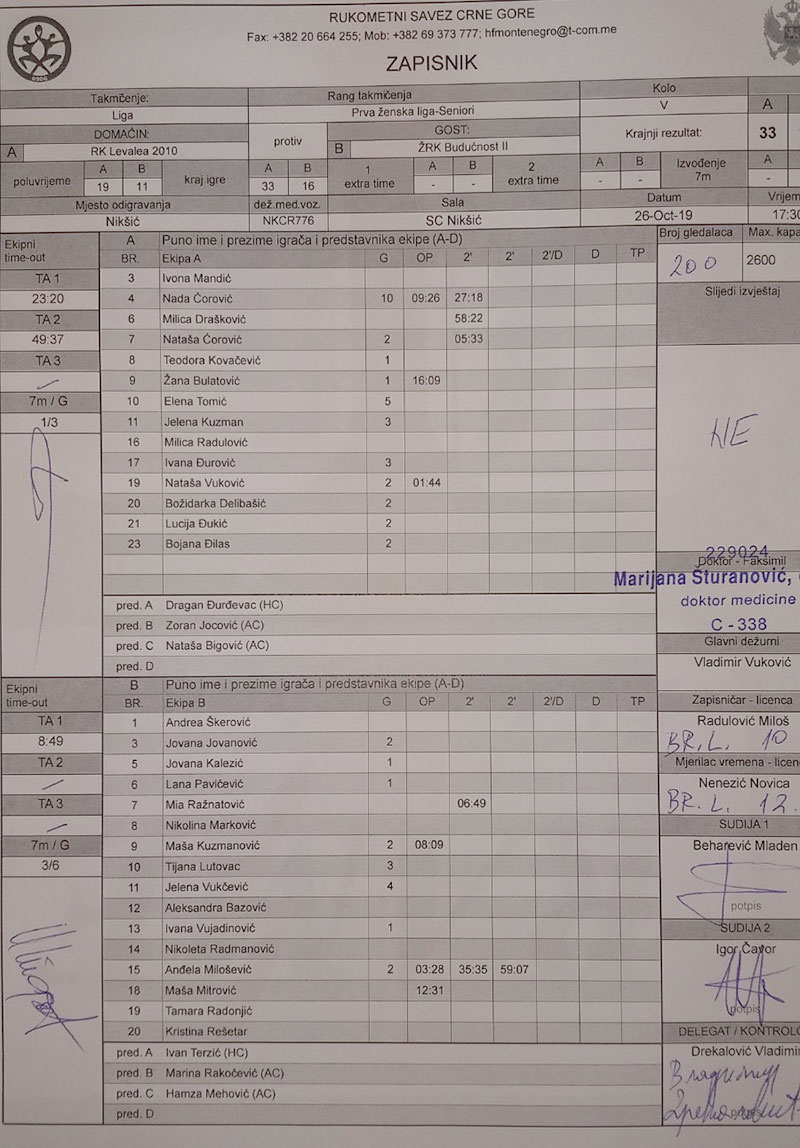 RUKOMETNI SAVEZ CRNE GORE
Fax: +382 20 664 255; Mob: +382 69 373 777; hfmontenegro@t-com.me
ZAPISNIK
Takmčenje: Rang takmičenja Kolo
Liga Prva ženska liga-Seniori V A
DOMAĆIN: protiv GOST: Krajnji rezultat: 33
A RK Levalea 2010 B ŽRK Budućnost II
poluvrijeme A B kraj igre A B 1 extra time A B 2 extra time A B Izvođenje 7m A
19 11 33 16 - - - - -
Mjesto odigravanja dež.med.voz. Sala Datum Vrijem
Nikšić NKCR776 SC Nikšić 26-Oct-19 17:30
Ekipni time-out A Puno ime i prezime igrača i predstavnika ekipe (A-D) Broj gledalaca Max. kapa
BR. Ekipa A G OP 2' 2' 2'/D D TP 200 2600
TA 1 3 Ivona Mandić
23:20 4 Nada Ćorović 10 09:26 27:18 Slijedi izvještaj
TA 2 6 Milica Drašković 58:22
49:37 7 Nataša Ćorović 2 05:33
TA 3 8 Teodora Kovačević 1
9 Žana Bulatović 1 16:09
7m / G 10 Elena Tomić 5
1/3 11 Jelena Kuzman 3 NE
16 Milica Radulović
17 Ivana Đurović 3
19 Nataša Vuković 2 01:44
20 Božidarka Delibašić 2
21 Lucija Đukić 2
23 Bojana Đilas 2
229024
Doktor - Faksimil
Marijana Šturanović,
doktor medicine
C - 338
pred. A Dragan Đurđevac (HC)
pred. B Zoran Jocović (AC)
pred. C Nataša Bigović (AC) Glavni dežurni
pred. D Vladimir Vuković
Ekipni time-out B Puno ime i prezime igrača i predstavnika ekipe (A-D)
BR. Ekipa B G OP 2' 2' 2'/D D TP Zapisničar - licenca
TA 1 1 Andrea Škerović Radulović Miloš
8:49 3 Jovana Jovanović 2 BR. L. 10
TA 2 5 Jovana Kalezić 1 Mjerilac vremena - licen
6 Lana Pavićević 1 Nenezić Novica
TA 3 7 Mia Ražnatović 06:49 BR. L. 12.
8 Nikolina Marković SUDIJA 1
7m / G 9 Maša Kuzmanović 2 08:09 Beharević Mladen
3/6 10 Tijana Lutovac 3
11 Jelena Vukčević 4
12 Aleksandra Bazović potpis
13 Ivana Vujadinović 1 SUDIJA 2
14 Nikoleta Radmanović Igor Čavor
15 Anđela Milošević 2 03:28 35:35 59:07
18 Maša Mitrović 12:31
19 Tamara Radonjić potpis
20 Kristina Rešetar DELEGAT / KONTROLO
pred. A Ivan Terzić (HC) Drekalović Vladimi
pred. B Marina Rakočević (AC)
pred. C Hamza Mehović (AC)
pred. D